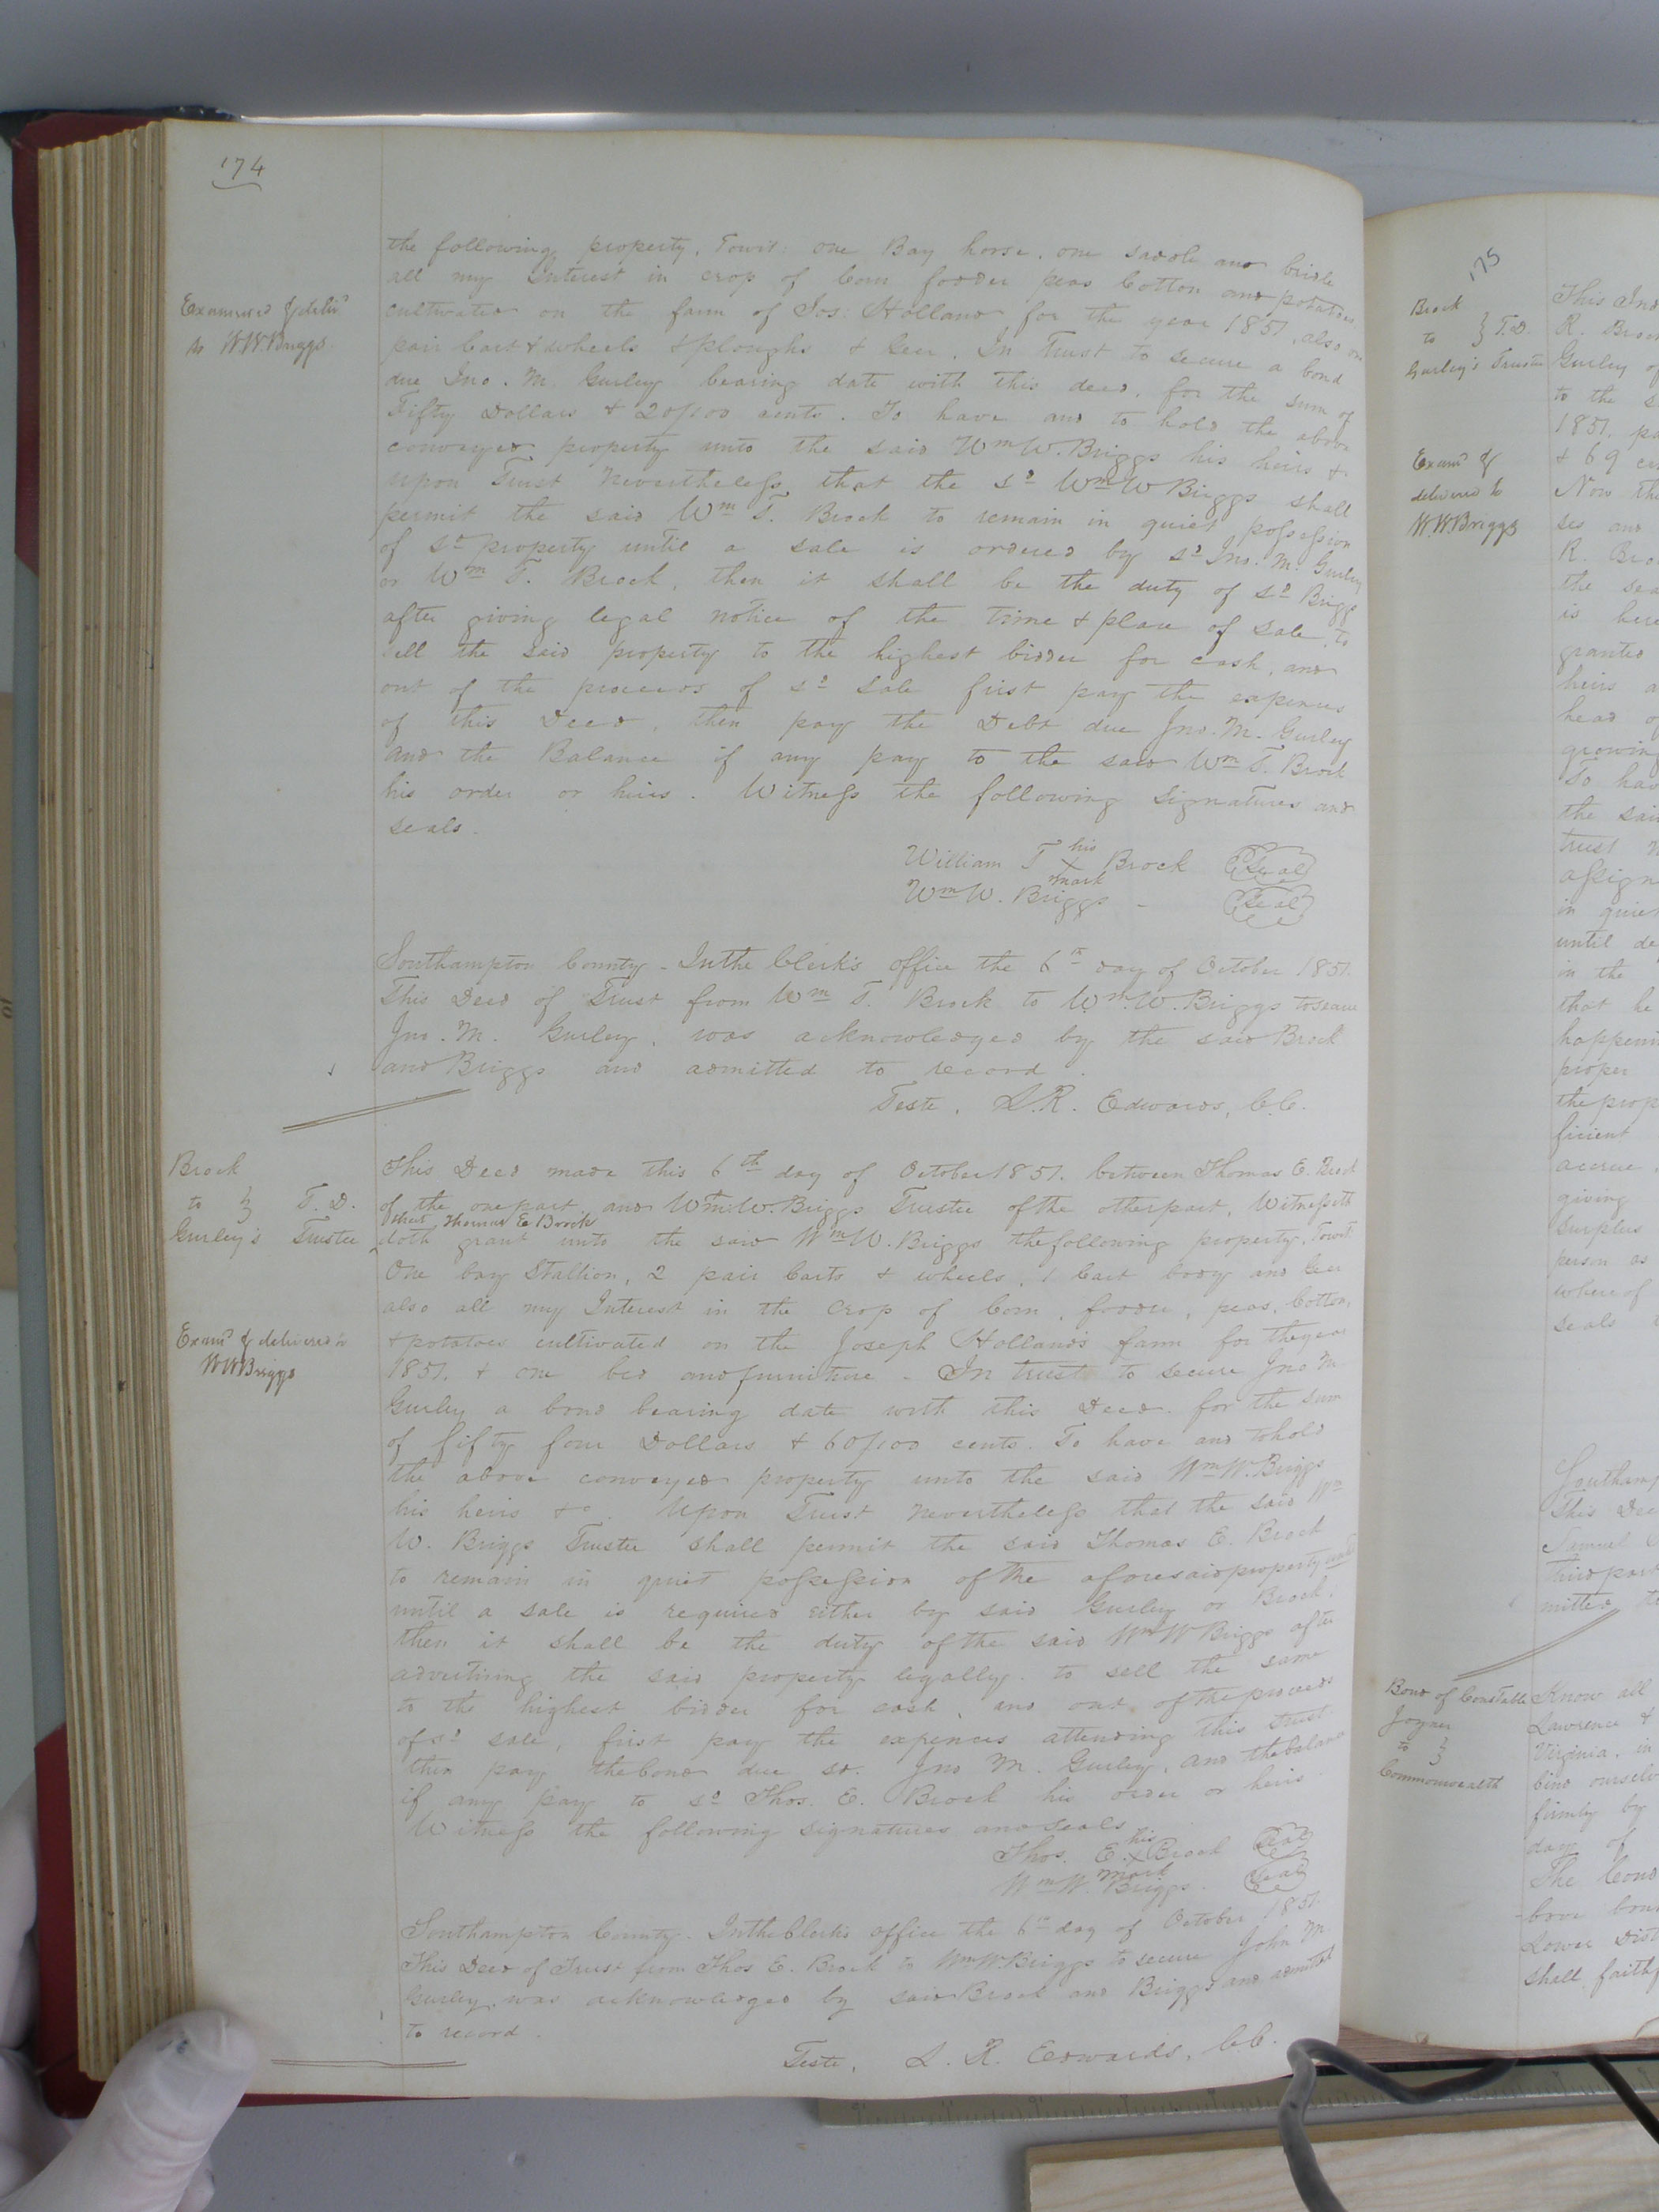 174
the following property, Towit: one Bay horse, one saddle and bridle
all my Interest in crop of Corn fodder peas Cotton and potatoes
Examined & deliv'd
to W.W. Briggs
cultivated on the farm of Jos: Holland for the year 1851, also one
pair Cart & wheels & ploughs & Geer. In Trust to secure a bond
due Jno. M. Gurley bearing date with this deed, for the sum of
Fifty Dollars & 20/100 cents. To have and to hold the above
conveyed property unto the said Wm W. Briggs his heirs &c
upon Trust Nevertheless that the sd Wm W Briggs shall
permit the said Wm T. Brock to remain in quiet possession
of sd property until a sale is ordered by sd Jno. M. Gurley
or Wm T. Brock, then it shall be the duty of sd Briggs
after giving legal notice of the time & place of sale, to
sell the said property to the highest bidder for cash, and
out of the proceeds of sd sale first pay the expenses
of this Deed, then pay the Debt due Jno. M. Gurley
and the Balance if any pay to the said Wm T. Brock
his order or heirs. Witness the following signatures and
seals.
William T his x mark Brock (Seal)
Wm W. Briggs - (Seal)
Southampton County - In the Clerk's office the 6th day of October 1851.
This Deed of Trust from Wm T. Brock to Wm W. Briggs to secure
Jno. M. Gurley, was acknowledged by the said Brock
and Briggs and admitted to record.
Teste, L.R. Edwards, C.C.
Brock
to } T. D.
Gurley's Trustee
This Deed made this 6th day of October 1851. between Thomas E. Brock
of the one part and Wm W. Briggs Trustee of the other part, Witnesseth
that Thomas E Brock
doth grant unto the said Wm W. Briggs the following property, Towit:
One bay Stallion, 2 pair Carts & wheels, 1 Cart body and Geer
also all my Interest in the Crop of Corn, fodder, peas, Cotton,
Exam'd & delivered to
W W Briggs
& potatoes cultivated on the Joseph Holland's farm for the year
1851. & one bed and furniture - In trust to secure Jno M
Gurley a bond bearing date with this Deed. for the sum
of fifty four Dollars & 60/100 cents. To have and to hold
the above conveyed property unto the said Wm W. Briggs
his heirs &c. Upon Trust nevertheless that the said Wm
W. Briggs Trustee shall permit the said Thomas E. Brock
to remain in quiet possession of the aforesaid property
until a sale is required either by said Gurley or Brock,
then it shall be the duty of the said Wm W Briggs after
advertising the said property legally to sell the same
to the highest bidder for cash, and out of the proceeds
of sd sale, first pay the expenses attending this trust
then pay the bond due sd. Jno M. Gurley, and the balance
if any pay to sd Thos. E. Brock his order or heirs.
Witness the following signatures and seals
Thos. E. his x mark Brock (Seal)
Wm W. Briggs. (Seal)
Southampton County. In the Clerks office the 6th day of October 1851.
This Deed of Trust from Thos E. Brock to Wm W. Briggs to secure John M
Gurley, was acknowledged by said Brock and Briggs and admitted
to record.
Teste, L. R. Edwards, C.C.
175
Brock
to } T.D.
Gurley's Trustee
Exam'd &
delivered to
W.W. Briggs
This Ind
R. Brock
Gurley of
to the s
1851. pa
& 69 ce
Now the
ses and
R. Bro
the sea
is here
granted
heirs a
head of
growing
To hav
the said
trust n
assign
in quiet
until de
in the
that he
happenin
proper
the prop
ficient
accrue,
giving
surplus
person as
whereof
seals
Southamp
This Dee
Samuel
third part
mitted to
Bond of Constable
Joyner
to }
Commonwealth
Know all
Lawrence &
Virginia, in
bind ourselv
firmly by
day of
The Cond
-bove boun
Lower Dist
shall faithf